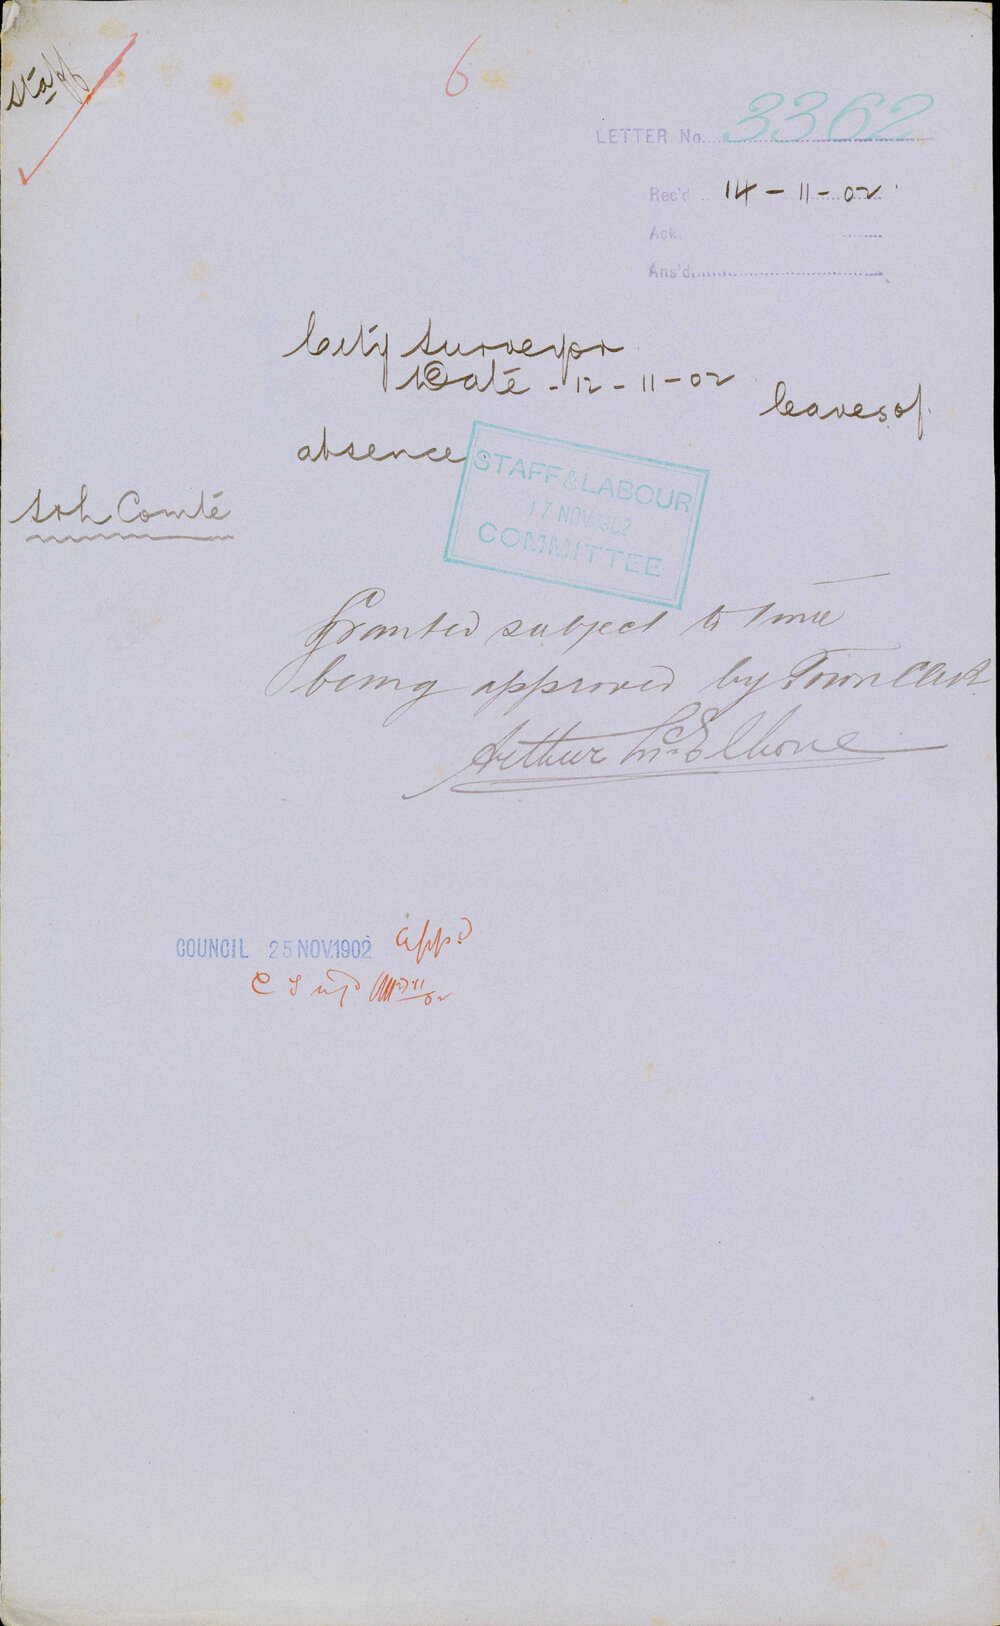 Staff
6
LETTER No. 3362
Rec'd 14-11-02
Ack.
Ans'd
City Surveyor
Date - 12-11-02
leaves of
absence
STAFF & LABOUR
17 NOV. 1902
COMMITTEE
S & L Comte
Granted subject to time
being approved by Town Clerk
Arthur McElhone
COUNCIL 25 NOV. 1902 appd
C S